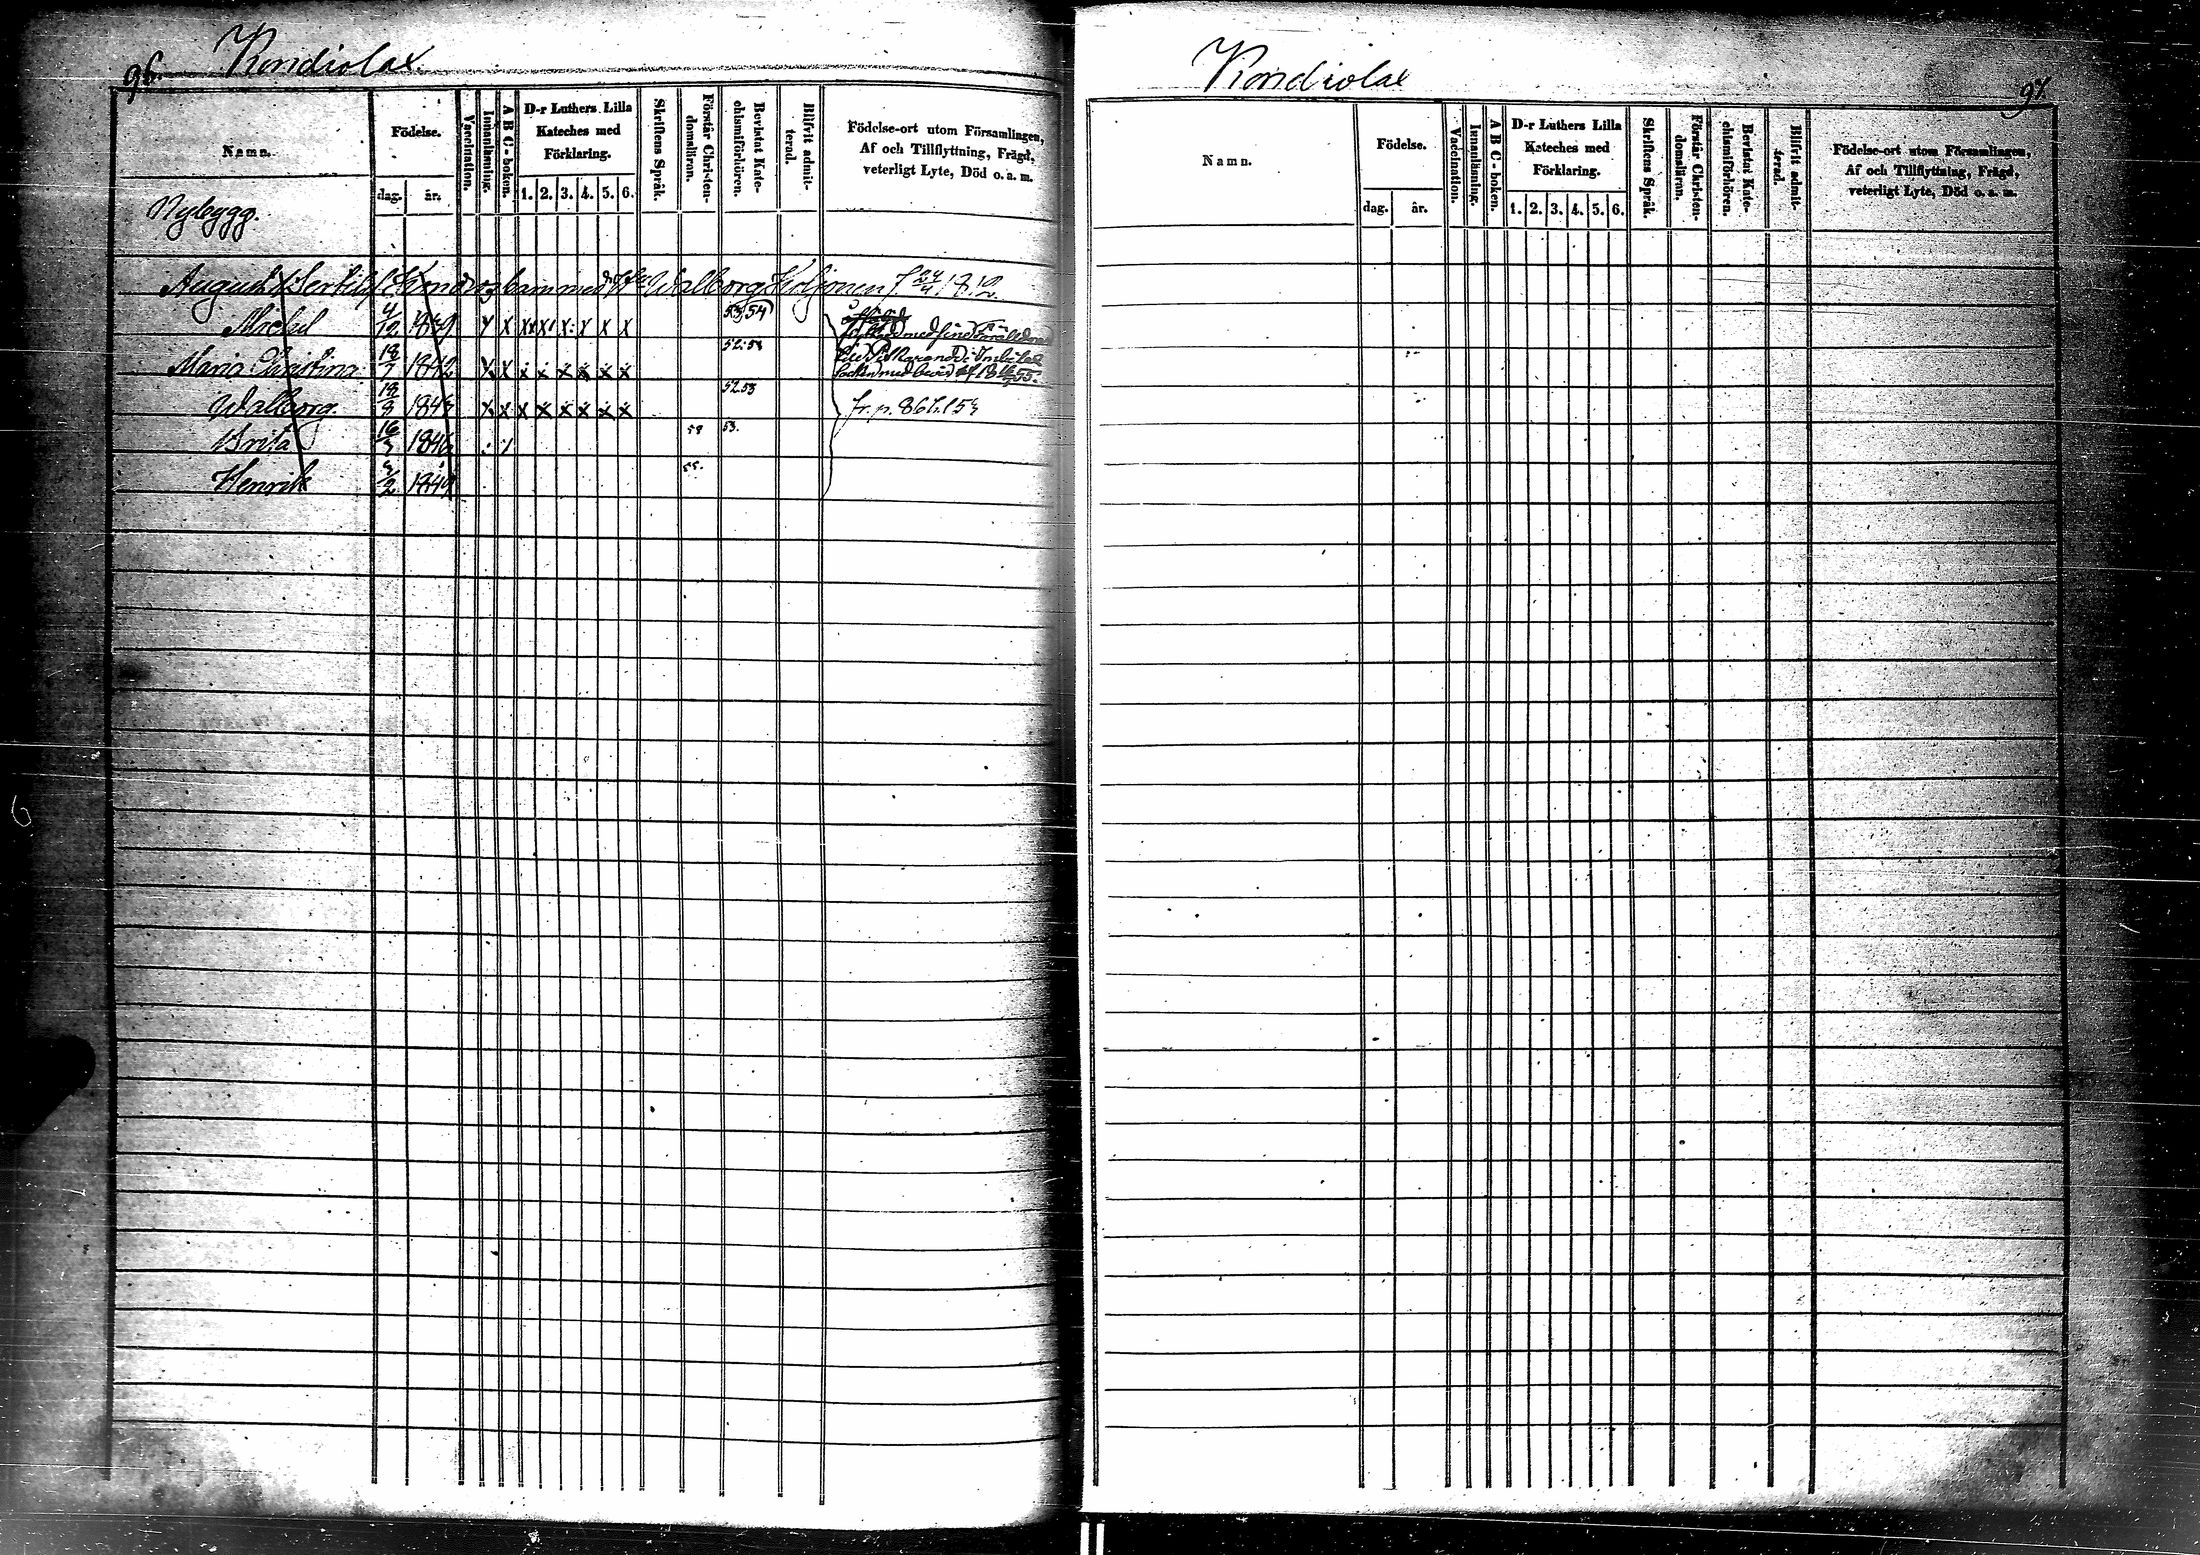 96.
Kondiolax
Namn.
Födelse.
dag. år.
Vaccination.
Innanläsning.
A B C-boken.
D-r Luthers Lilla
Kateches med
Förklaring.
1. 2. 3. 4. 5. 6.
Skriftens Språk.
Förstår Christen-
domsläran.
Bevistat Kate-
chismiförhören.
Blifvit admit-
terad.
Födelse-ort utom Församlingen,
Af och Tillflyttning, Frägd,
veterligt Lyte, Död o. a. m.
Nybygg.
Walborg Koljonen f 24/4 1812.
Michel 4/12 1839 x x x x x x x x 53,54
Maria Christina 18/7 1842 x x x x x x x x 52.53
Walborg. 18/8 1843 x x x x x x x x 52.53 fr. p. 867.153
Brita 16/3 1846 53 53.
Henrik 2/2 1849 55.
Kondiolax
97
Namn.
Födelse.
dag. år.
Vaccination.
Innanläsning.
A B C-boken.
D-r Luthers Lilla
Kateches med
Förklaring.
1. 2. 3. 4. 5. 6.
Skriftens Språk.
Förstår Christen-
domsläran.
Bevistat Kate-
chismiförhören.
Blifvit admit-
terad.
Födelse-ort utom Församlingen,
Af och Tillflyttning, Frägd,
veterligt Lyte, Död o. a. m.